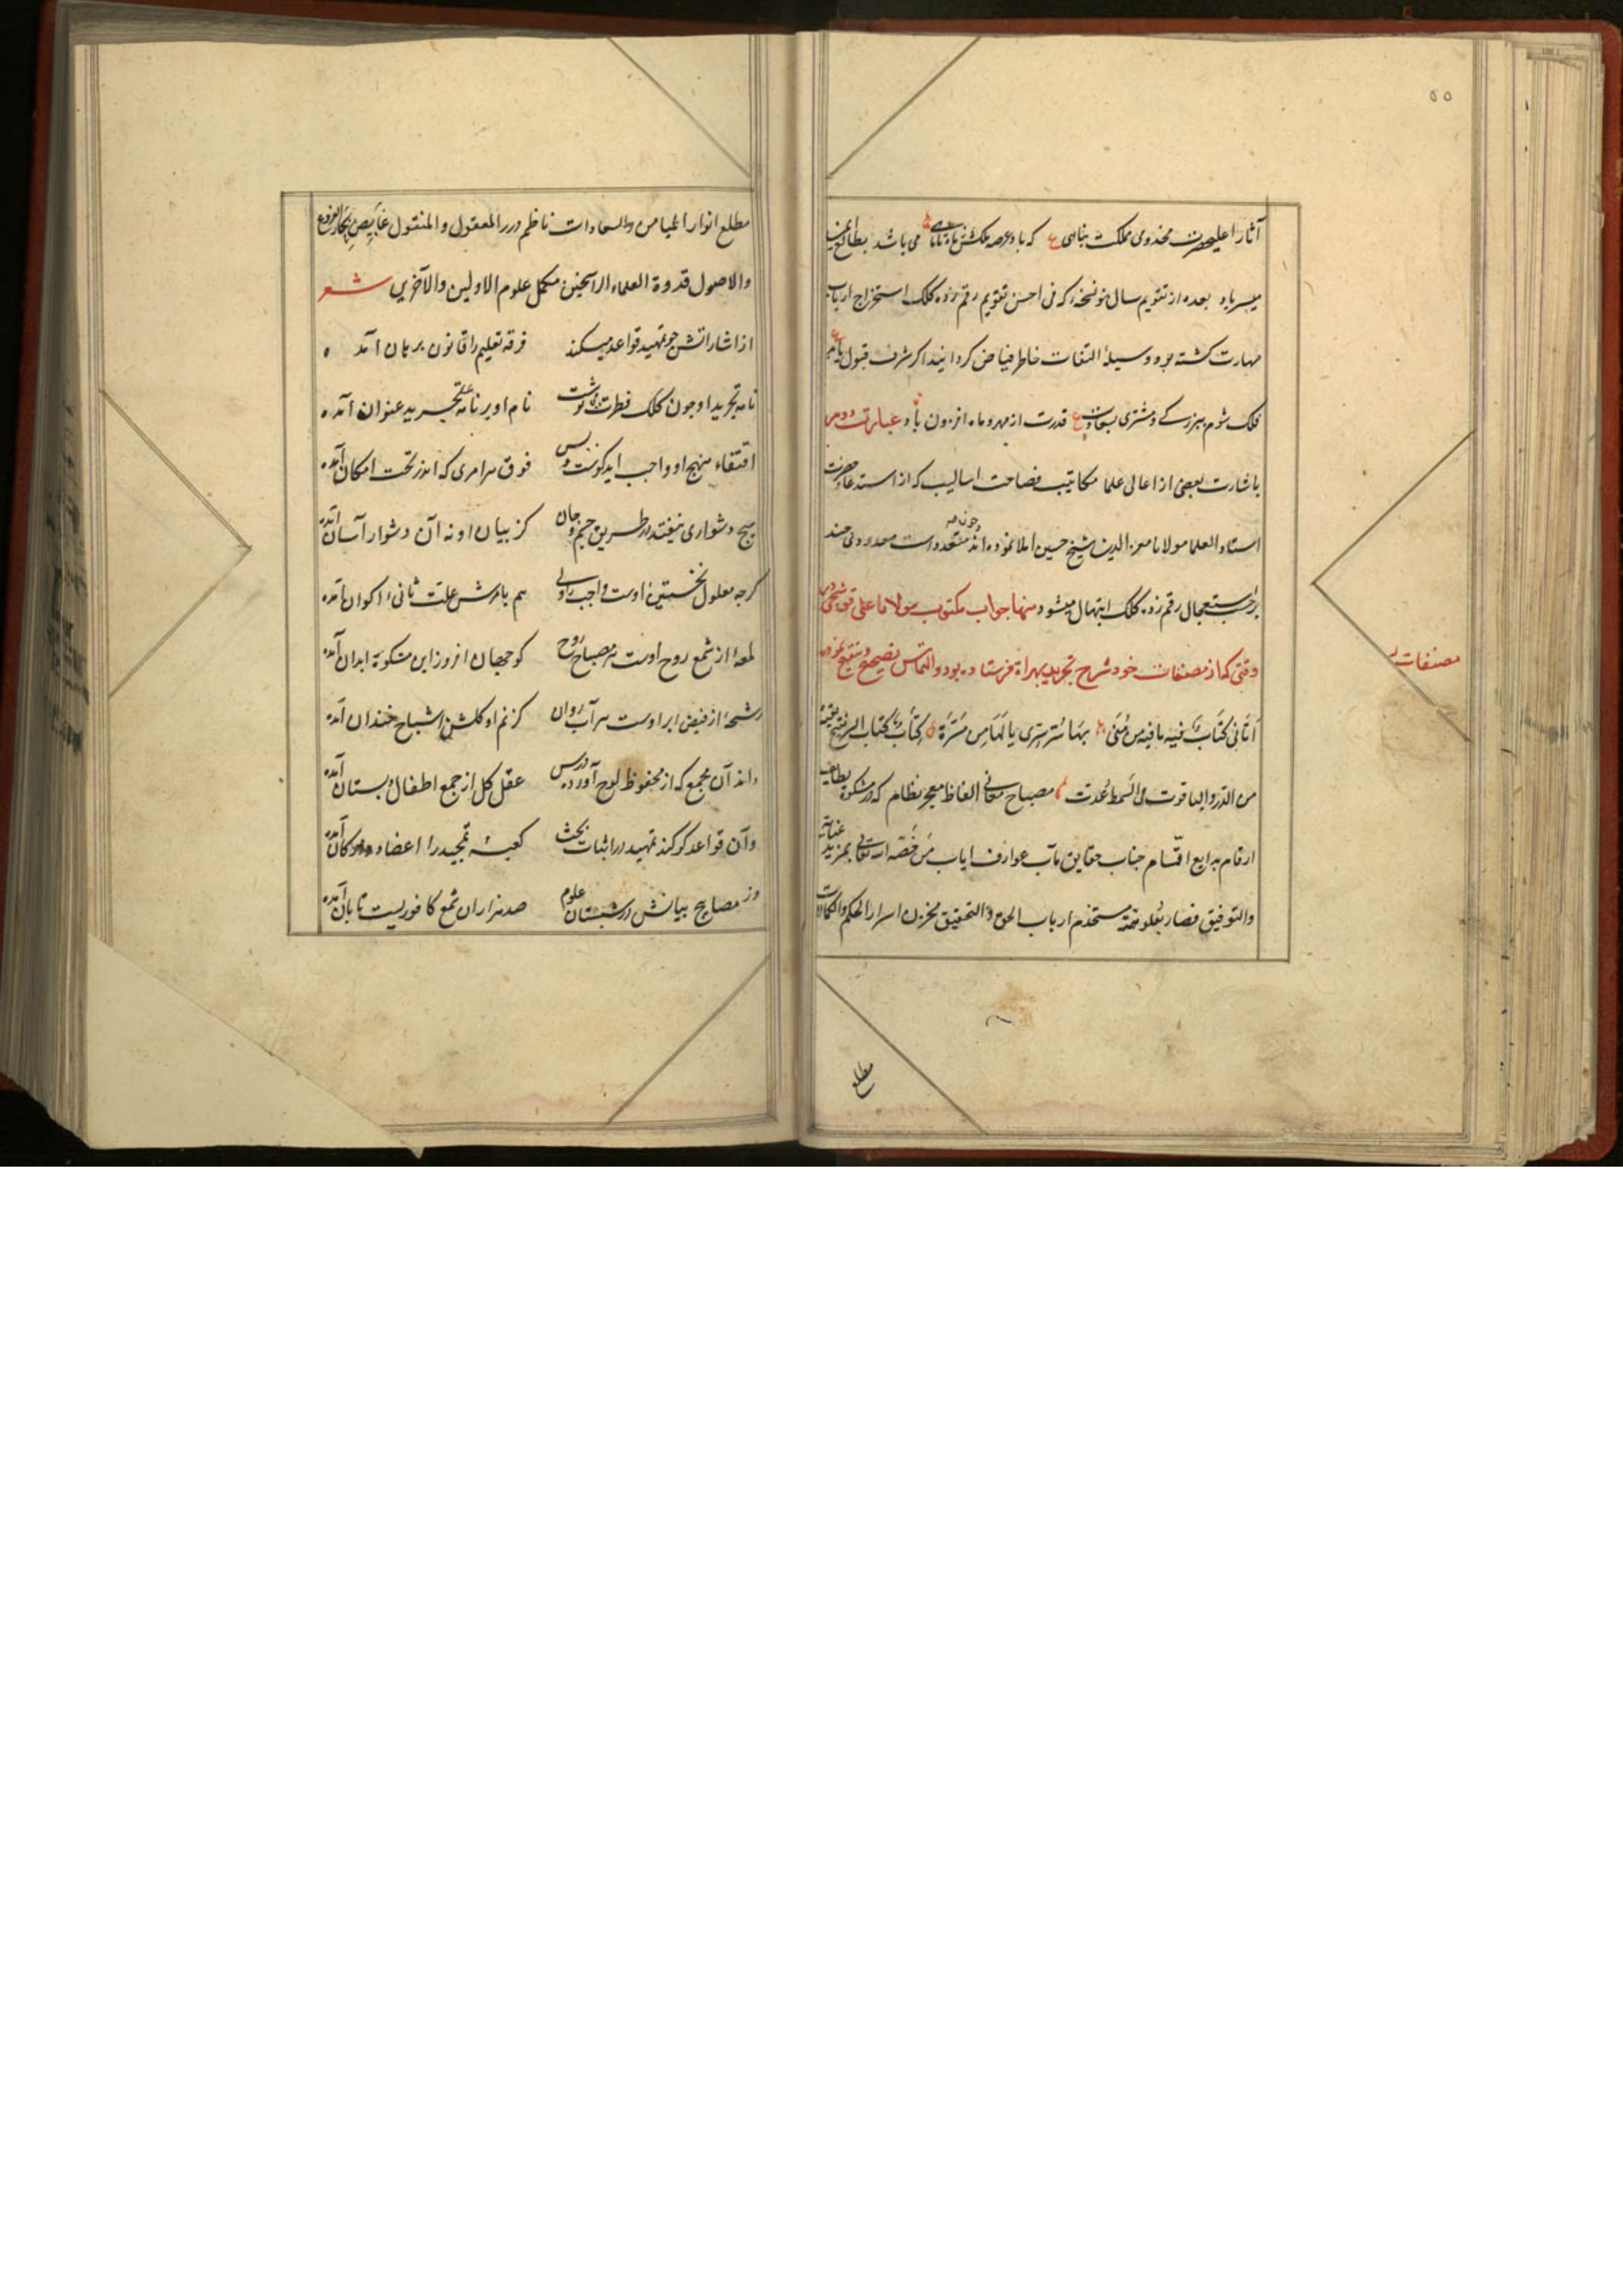 ۵۵
آثار اعلیحضرت مخدومی مملکت پناهی ع که باد عرصه ملکش می باشد بطالع
میسر باد بعده از تقویم سال نو نسخهٔ که فی احسن تقویم رقم زده کلک استخراج ارباب
مهارت کشته بود وسیلهٔ التفات خاطر فیاض کردانید اکر شرف قبول یابد
فلک شوم ببزرکی و مشتری بسعادت ع قدرت از مهر و ماه افزون باد عبارت دوم
باشارت بعضی از اعالی علما مکاتیب فصاحت اسالیب که از استدعاء حضرت
استاد العلما مولانا معز الدین شیخ حسین املا نموده اند چون متعددست معدودی چند
برحسب استعجال رقم زده کلک ابتهال میشود منها جواب مکتوب مولانا علی قوشجی
وقتی که از مصنفات خود شرح تجرید بهراة فرستاده بود و التماس تصحیح و تنقیح نموده
مصنفات
اَتَانی کتَاب فیه ما فیه من مُنًی بهَا سُر سِری یا لَهَا مِن مَسَرَّة کِتَاب
من الدرّ والیاقوت فی السمط عُدت مصباح معانی الفاظ معجز نظام که در مشکوة لطایف
ارقام بدایع اقسام جناب حقایق مآب عوارف ایاب مَن خَصّه الله تعالی بمزید عنایته
والتوفیق فصار بعُلو همّته مستخدم ارباب الحق و التحقیق مخزن اسرار الحکم والکمالات
مطلع
مطلع انوار المیامن والسعادات ناظم درر المعقول والمنقول غایص بحار الفروع
والاصول قدوة العلماء الراسخین مکمل علوم الاولین والآخرین شعر
از اشاراتش جو تمهید قواعد میکند فرقه تعلیم را قانون برهان آمده
نامه تجرید او جون کلک فطرت می نوشت نام او بر نامه تجرید عنوان آمده
اقتفاء منهج او واجب اید کونت و بس فوق هر امری که اندر تحت امکان آمده
هیچ دشواری نیفتد در طریق جسم و جان کز بیان او نه آن دشوار آسان آمده
کرجه معلول نخستین اوست واجب را ولی هم بامرش علت ثانیء اکوان آمده
لمعهٔ از شمع روح اوست هر مصباح روح کو جهان افروز این مشکوة ابدان آمده
رشحهٔ از فیض ابر اوست هر آب روان کز نم او کلشن اشباح خندان آمده
واند آن مجمع که از محفوظ لوح آورد درس عقل کل از جمع اطفال دبستان آمده
وآن قواعد کو کند تمهید در اثبات بحث کعبهٔ تمجید را اعضاد و ارکان آمده
وز مصابیح بیانش در شبستان علوم صد هزاران شمع کافوریست تابان آمده